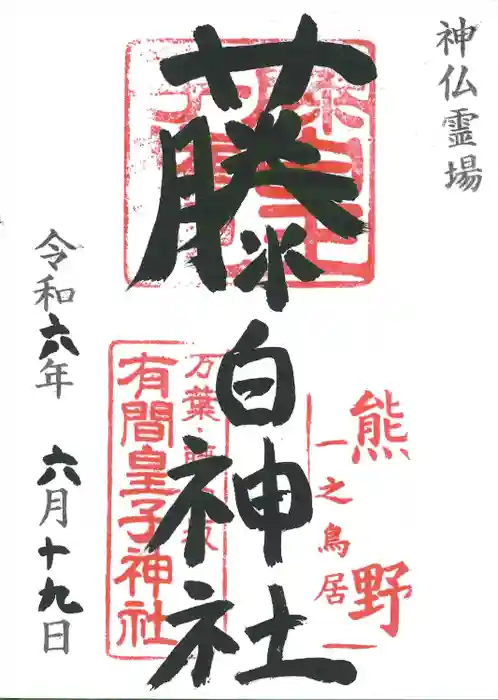 神仏霊場
藤白神社
熊野
一之鳥居
万葉・藤白坂
有間皇子神社
令和六年 六月十九日